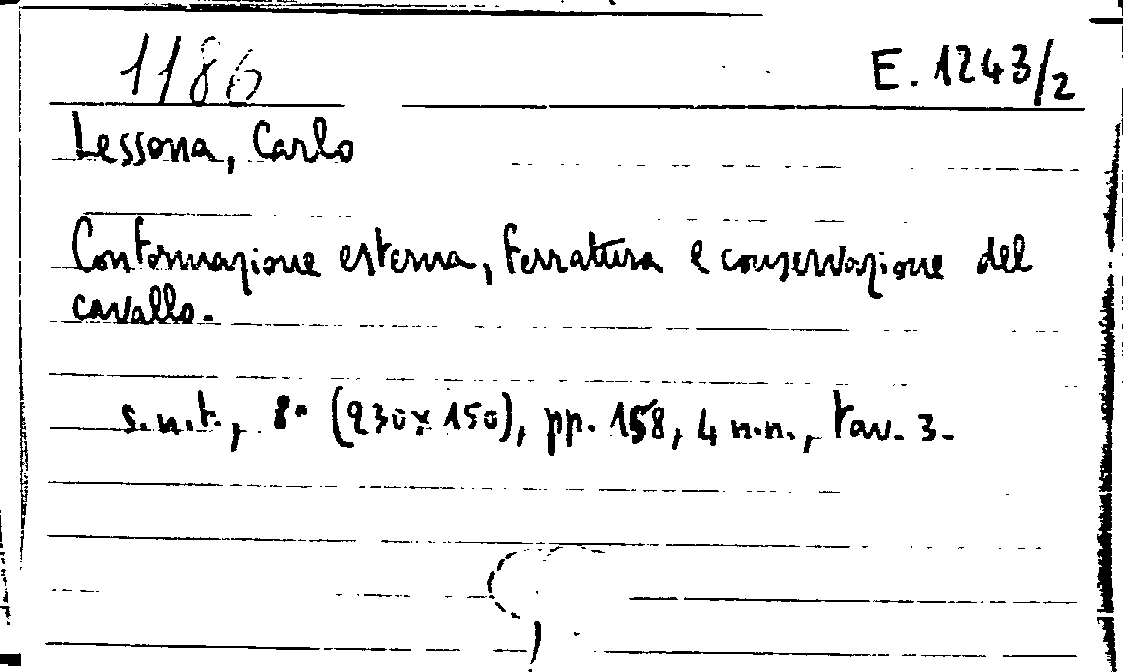 1186
E. 1243/2
Lessona, Carlo
Conformazione esterna, ferrattura e conservazione del
cavallo.
s.n.t., 8° (230x150), pp. 158, 4 n.n., tav. 3.